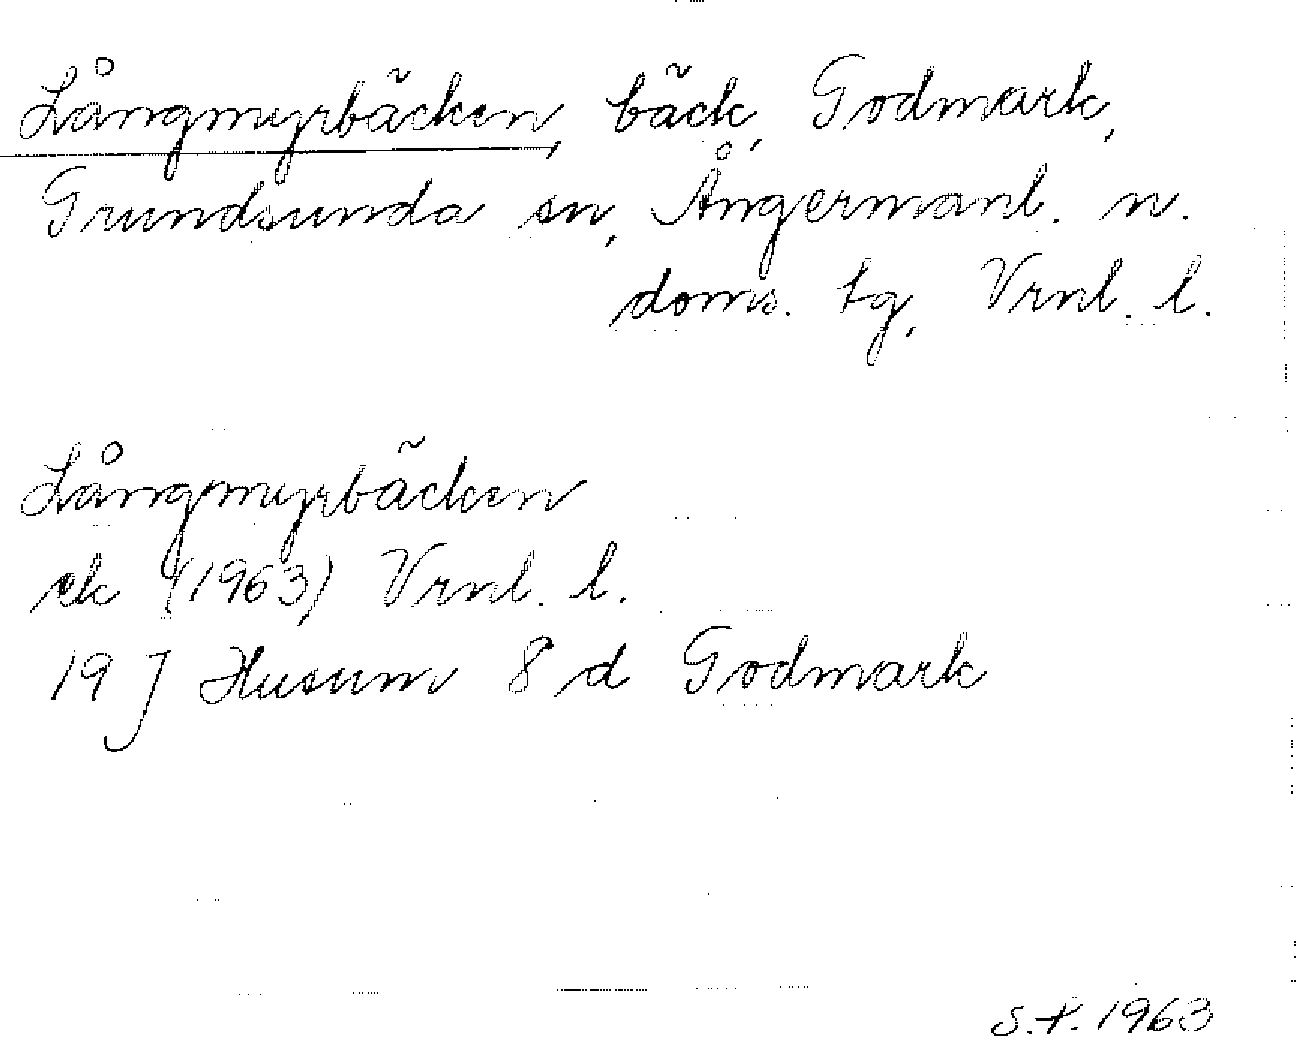 Långmyrbäcken, bäck, Godmark,
Grundsunda sn, Ångermanl. n.
doms. tg, Vrnl. l.
Långmyrbäcken
ek (1963) Vrnl. l.
19 J Husum 8 d Godmark
S.P. 1963